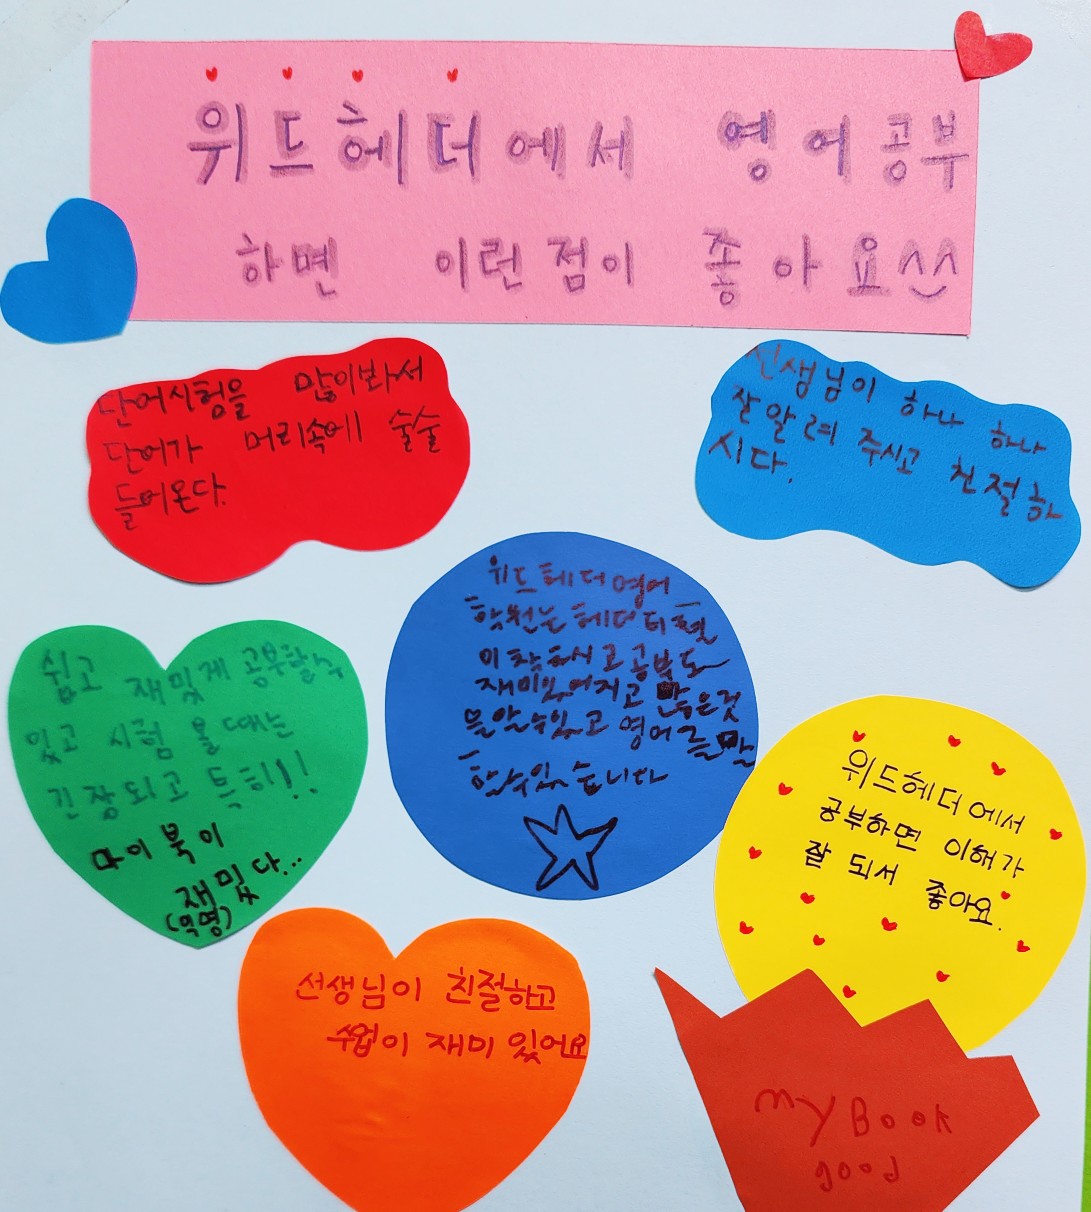 위드헤더에서 영어공부
하면 이런점이 좋아요^^
단어시험을 많이봐서
단어가 머리속에 술술
들어온다.
선생님이 하나 하나
잘알려 주시고 친절하
시다.
위드헤더영어
학원는 헤더티쳘
이 착하시고 공부도
재미있어지고 많은것
을알수있고 영어를말
할수있습니다
쉽고 재밌게 공부할수
있고 시험 볼 때는
긴장되고 특히!!
마이 북이
재밌다...
(익명)
위드헤더에서
공부하면 이해가
잘 되서 좋아요.
선생님이 친절하고
수업이 재미있어요
my Book
good